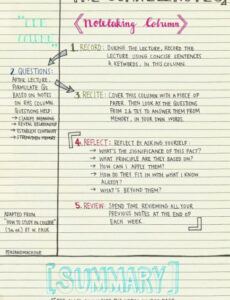 Notetaking Column
1. RECORD: DURING THE LECTURE, RECORD THE
LECTURE USING CONCISE SENTENCES
& KEYWORDS, IN THIS COLUMN.
2. QUESTIONS:
AFTER LECTURE,
FORMULATE QS
BASED ON NOTES
IN RHS COLUMN.
QUESTIONS HELP:
→ CLARIFY MEANING
→ REVEAL RELATIONSHIP
→ ESTABLISH CONTINUITY
→ STRENGTHEN MEMORY
3. RECITE: COVER THIS COLUMN WITH A PIECE OF
PAPER. THEN LOOK AT THE QUESTIONS
FROM 2 & TRY TO ANSWER THEM FROM
MEMORY, IN YOUR OWN WORDS.
4. REFLECT: REFLECT BY ASKING YOURSELF:
→ WHAT'S THE SIGNIFICANCE OF THIS FACT?
→ WHAT PRINCIPLE ARE THEY BASED ON?
→ HOW CAN I APPLY THEM?
→ HOW DO THEY FIT IN WITH WHAT I KNOW
ALREADY?
→ WHAT'S BEYOND THEM?
5. REVIEW: SPEND TIME REVIEWING ALL YOUR
PREVIOUS NOTES AT THE END OF
EACH WEEK.
ADAPTED FROM
"HOW TO STUDY IN COLLEGE"
BY W. PAUK
[SUMMARY]